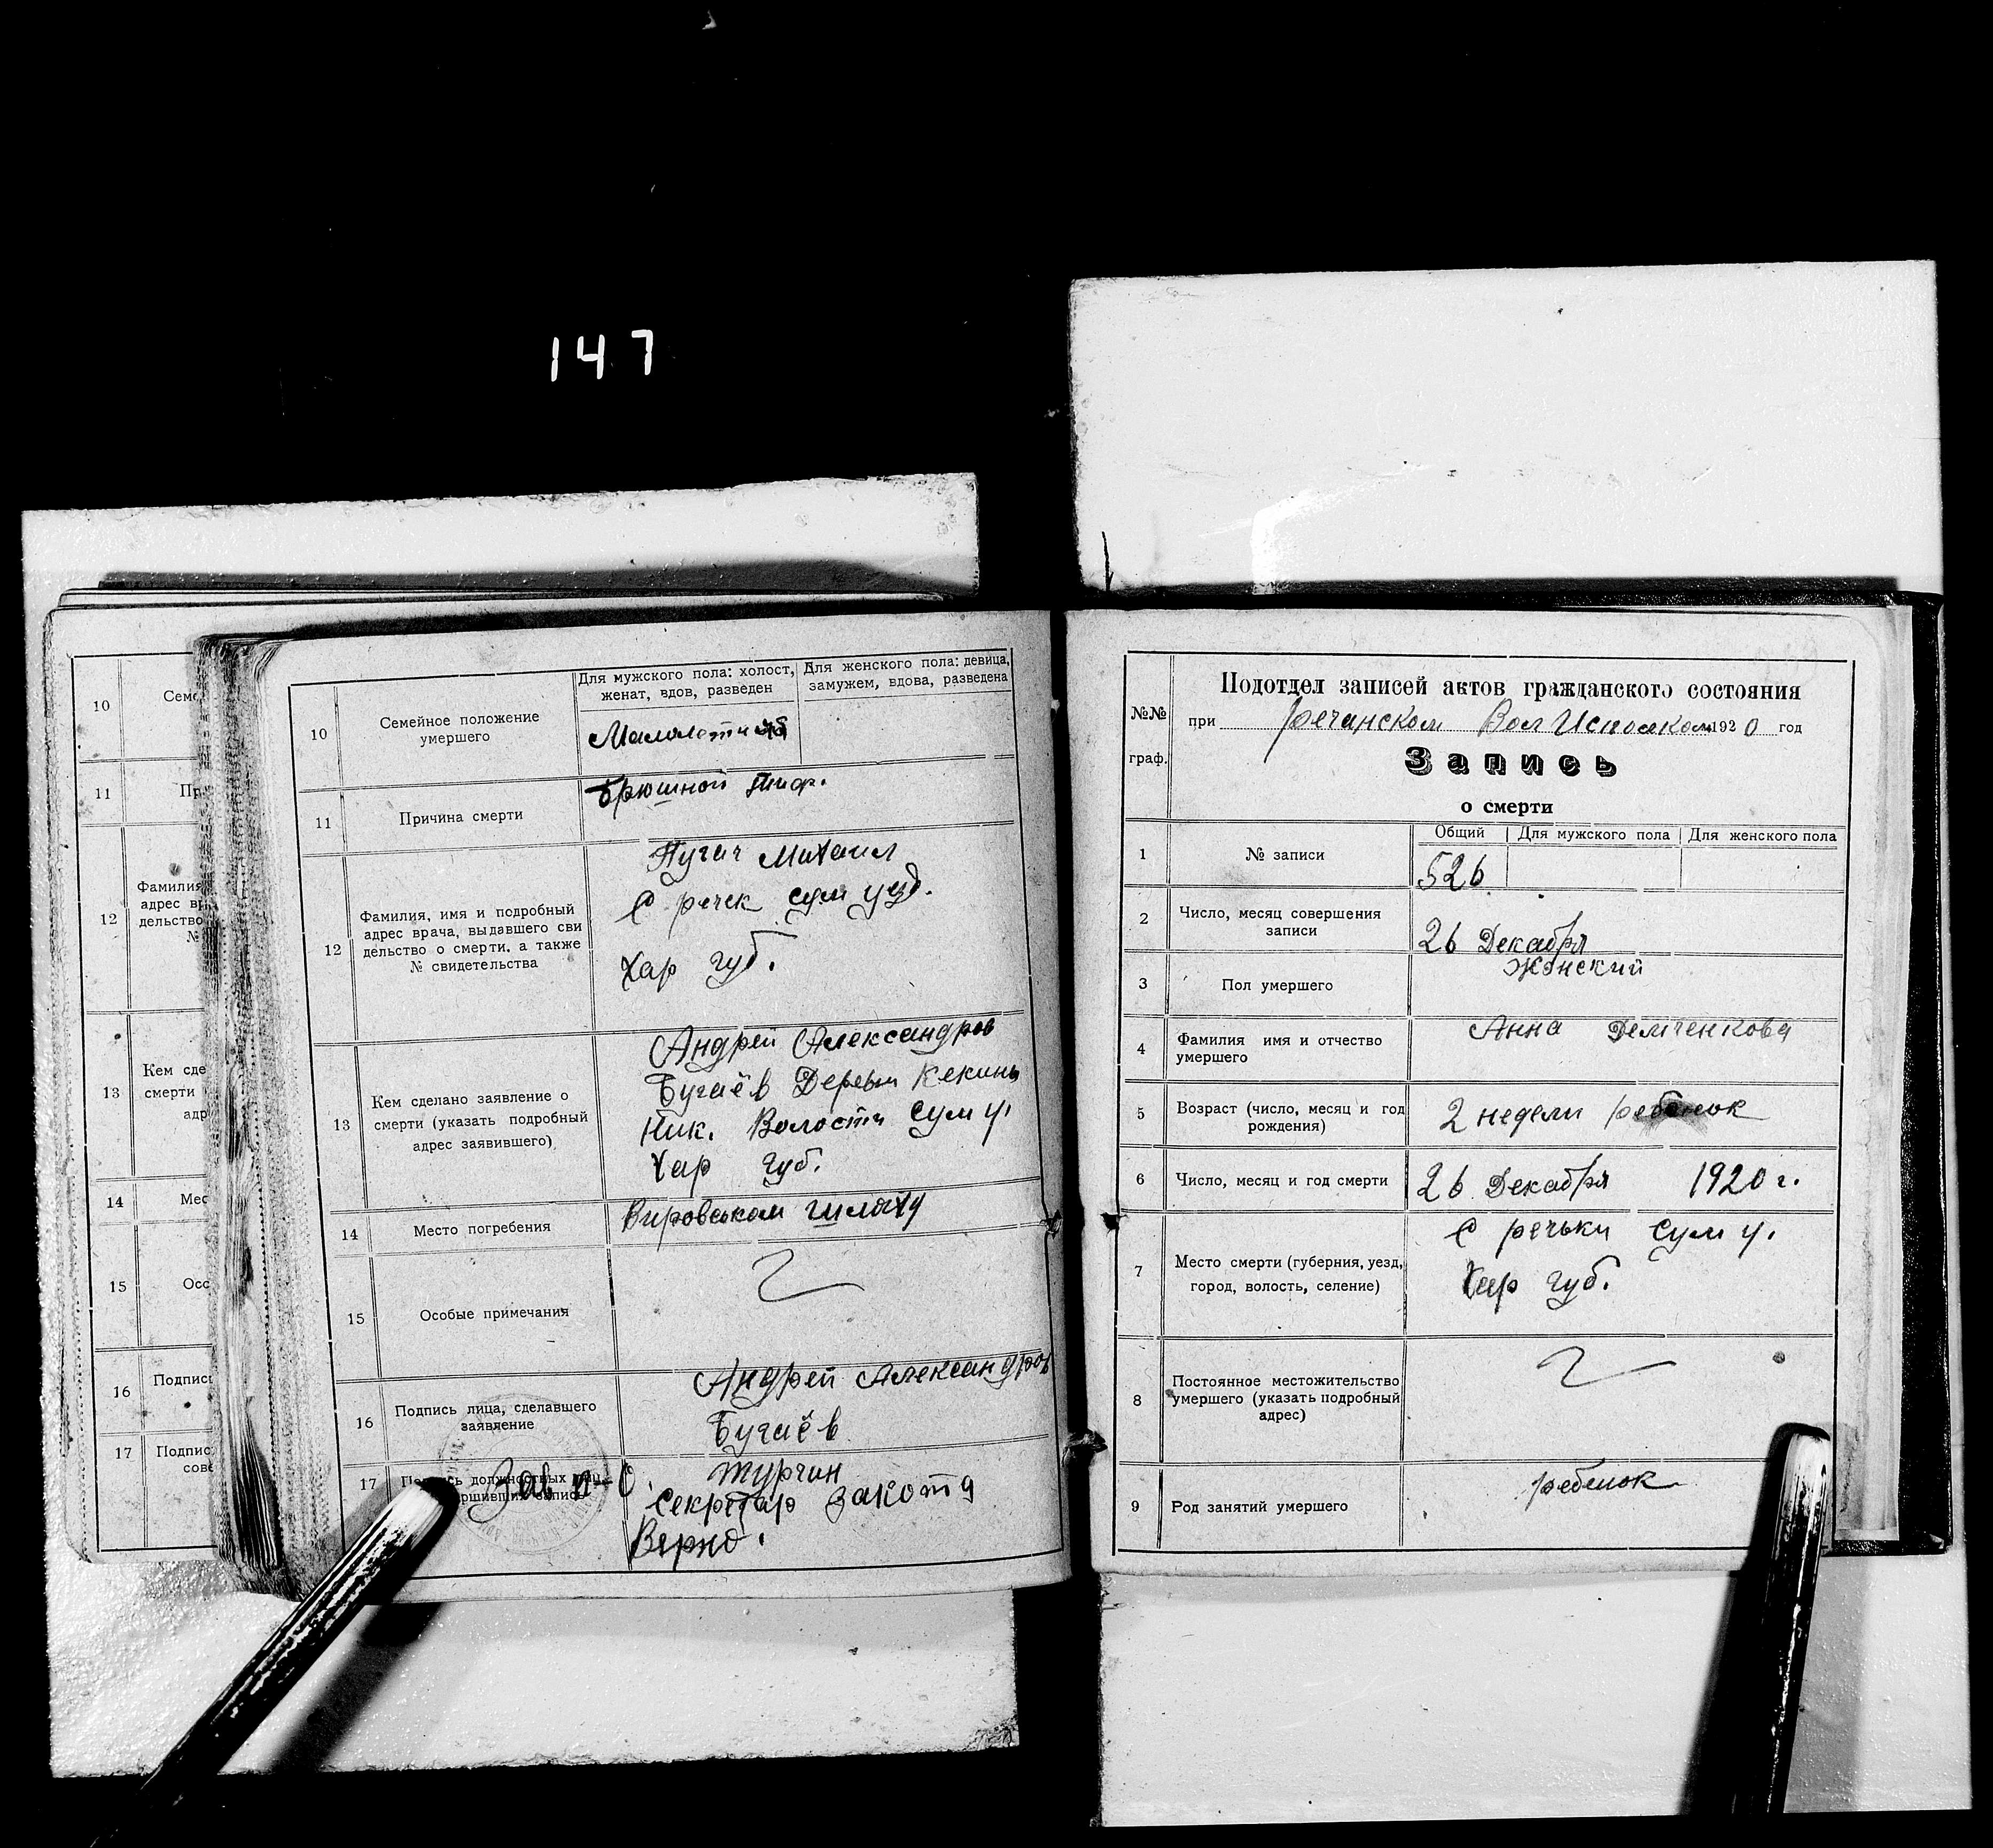 147
10
Сем
11
Пр
12
Фамилия
адрес в
дельство
№
13
Кем сде
смерти
адр
14
Мес
15
Осс
16
Подпис
17
Подпис
сове
10
Семейное положение
умершего
Для мужского пола: холост,
женат, вдов, разведен
Для женского пола: девица,
замужем, вдова, разведена
11
Причина смерти
Брюшной тиф.
12
Фамилия, имя и подробный
адрес врача, выдавшего сви
дельство о смерти, а также
№ свидетельства
Пугач Михаил
С речек сум узд.
Хар губ.
13
Кем сделано заявление о
смерти (указать подробный
адрес заявившего)
Андрей Александров
Бугаёв Деревн Кекины
Ник. Волости Сум у.
Хар губ.
14
Место погребения
Вировском шляху
15
Особые примечания
16
Подпись лица, сделавшего
заявление
Андрей Александров
Бугаёв
17
Подпись должностных лиц,
Зав п-о.
Турчин
Секретар
Верно.
№№
граф.
Подотдел записей актов гражданского состояния
при Речанском Вол Исполком 1920 год
Запись
о смерти
1
№ записи
Общий
Для мужского пола
Для женского пола
526
2
Число, месяц совершения
записи
26 Декабря
3
Пол умершего
Женский
4
Фамилия имя и отчество
умершего
Анна Демченкова
5
Возраст (число, месяц и год
рождения)
2 недели ребенок
6
Число, месяц и год смерти
26 Декабря 1920 г.
7
Место смерти (губерния, уезд,
город, волость, селение)
С речьки Сум у.
Хар губ.
8
Постоянное местожительство
умершего (указать подробный
адрес)
9
Род занятий умершего
ребенок